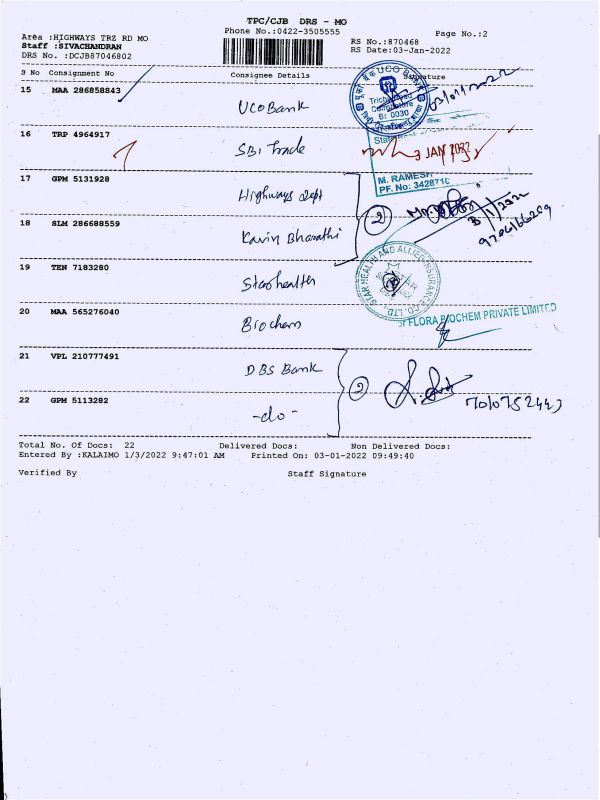 TPC/CJB DRS - MO
Area :HIGHWAYS TRZ RD MO
Phone No.:0422-3505555
Page No.:2
Staff :SIVACHANDRAN
RS No.:870468
DRS No. :DCJB87046802
RS Date:03-Jan-2022
S No Consignment No Consignee Details Signature
15 MAA 286858843 UCO Bank
UCO BANK
Coimbatore
Br: 0030
03/01/2022
16 TRP 4964917 SBI Trade
3 JAN 2022
M. RAMESH
PF. No: 3428710
17 GPM 5131928 Highways dept
2
3/1/2022
18 SLM 286688559 Kavin Bharathi
19 TEN 7183280 Starhealth
STAR HEALTH AND ALLIED INSURANCE CO. LTD.
20 MAA 565276040 Biochem
FLORA BIOCHEM PRIVATE LIMITED
21 VPL 210777491 DBS Bank
2
22 GPM 5113282 -do-
Total No. Of Docs: 22 Delivered Docs: Non Delivered Docs:
Entered By :KALAIMO 1/3/2022 9:47:01 AM Printed On: 03-01-2022 09:49:40
Verified By Staff Signature